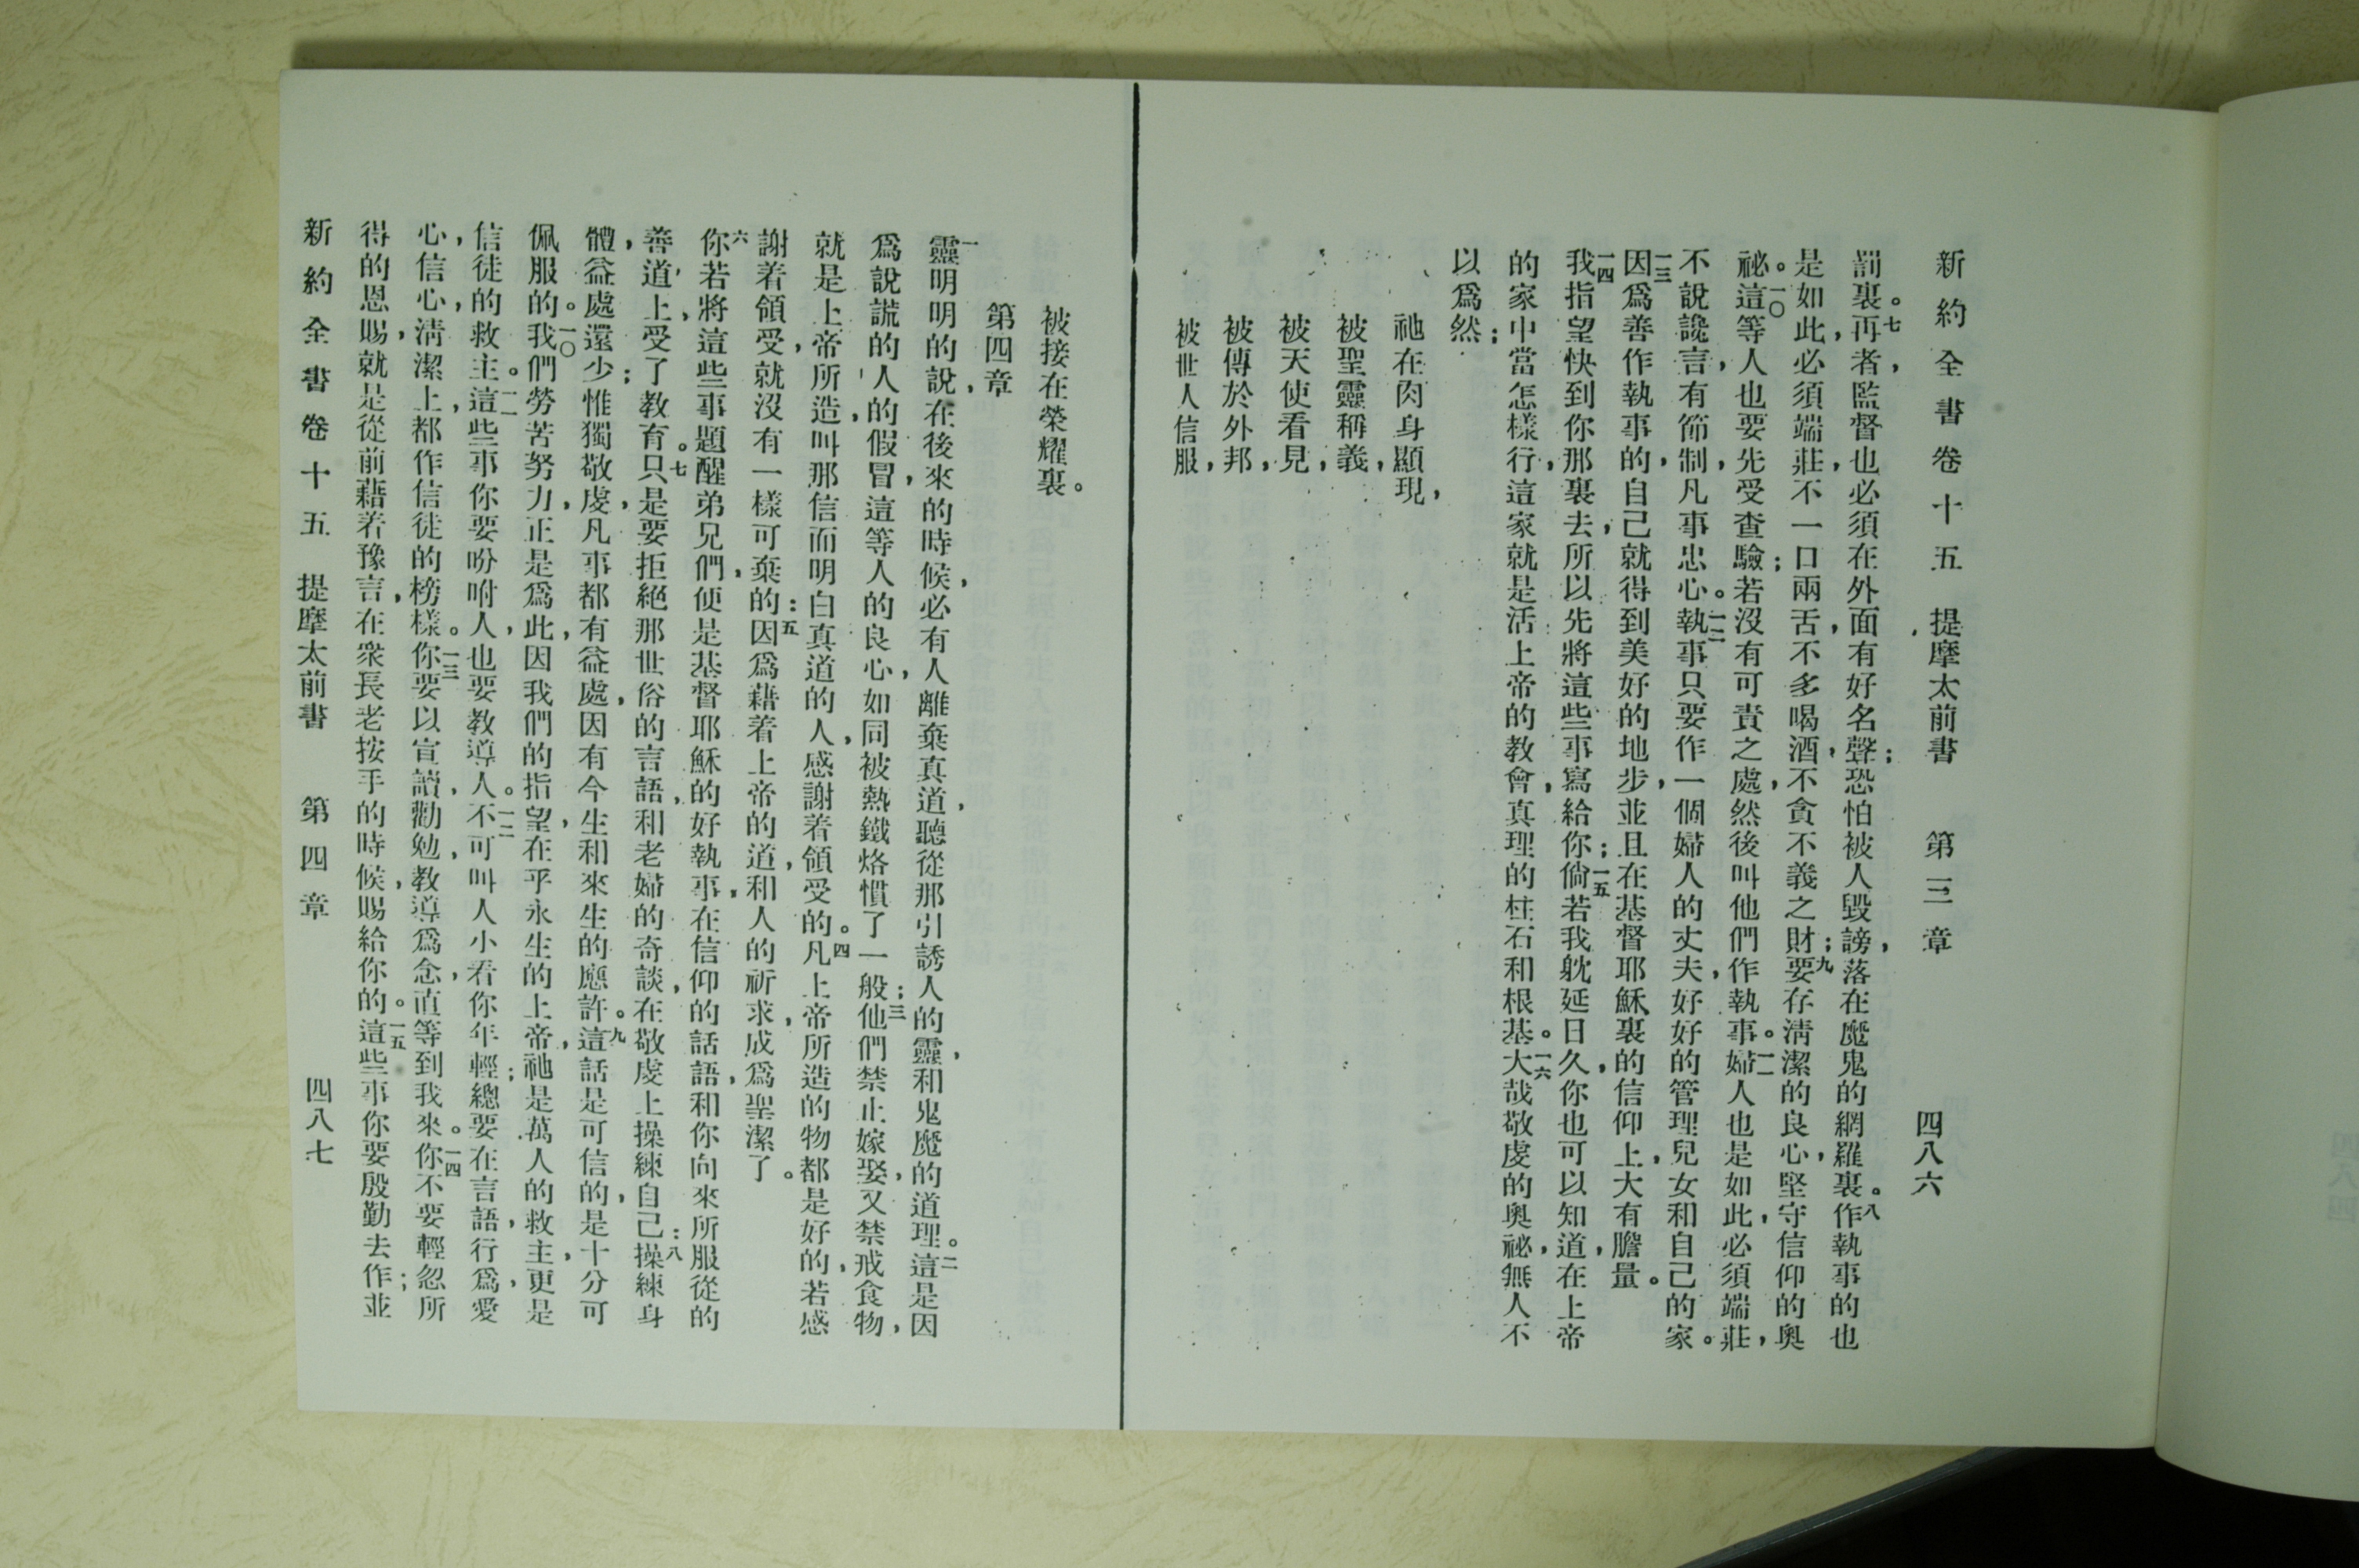 新約全書卷十五 提摩太前書 第三章 四八六
罰裏。七再者，監督也必須在外面有好名聲；恐怕被人毀謗，落在魔鬼的網羅裏。八作執事的也
是如此，必須端莊，不一口兩舌，不多喝酒，不貪不義之財；九要存清潔的良心，堅守信仰的奧
祕。一〇這等人也要先受查驗；若沒有可責之處，然後叫他們作執事。一一婦人也是如此，必須端莊，
不說讒言，有節制，凡事忠心。一二執事只要作一個婦人的丈夫，好好的管理兒女和自己的家。
一三因爲善作執事的，自己就得到美好的地步，並且在基督耶穌裏的信仰上，大有膽量。
一四我指望快到你那裏去，所以先將這些事寫給你；一五倘若我躭延日久，你也可以知道，在上帝
的家中當怎樣行，這家就是活上帝的教會，真理的柱石和根基。一六大哉敬虔的奧祕，無人不
以爲然；
祂在肉身顯現，
被聖靈稱義，
被天使看見，
被傳於外邦，
被世人信服，
被接在榮耀裏。
第四章
一靈明明的說，在後來的時候，必有人離棄真道，聽從那引誘人的靈，和鬼魔的道理。二這是因
爲說謊的人的假冒，這等人的良心，如同被熱鐵烙慣了一般；三他們禁止嫁娶，又禁戒食物，
就是上帝所造，叫那信而明白真道的人，感謝着領受的。四凡上帝所造的物都是好的，若感
謝着領受，就沒有一樣可棄的：五因爲藉着上帝的道，和人的祈求，成爲聖潔了。
六你若將這些事題醒弟兄們，便是基督耶穌的好執事，在信仰的話語，和你向來所服從的
善道上，受了教育。七只是要拒絕那世俗的言語，和老婦的奇談，在敬虔上操練自己：八操練身
體，益處還少；惟獨敬虔，凡事都有益處，因有今生和來生的應許。九這話是可信的，是十分可
佩服的。一〇我們勞苦努力，正是爲此，因我們的指望，在乎永生的上帝，祂是萬人的救主，更是
信徒的救主。一一這些事你要吩咐人，也要教導人。一二不可叫人小看你年輕；總要在言語，行爲，愛
心，信心，清潔上，都作信徒的榜樣。一三你要以宣讀，勸勉，教導爲念，直等到我來。一四你不要輕忽所
得的恩賜，就是從前藉着豫言，在衆長老按手的時候，賜給你的。一五這些事你要殷勤去作；並
新約全書卷十五 提摩太前書 第四章 四八七